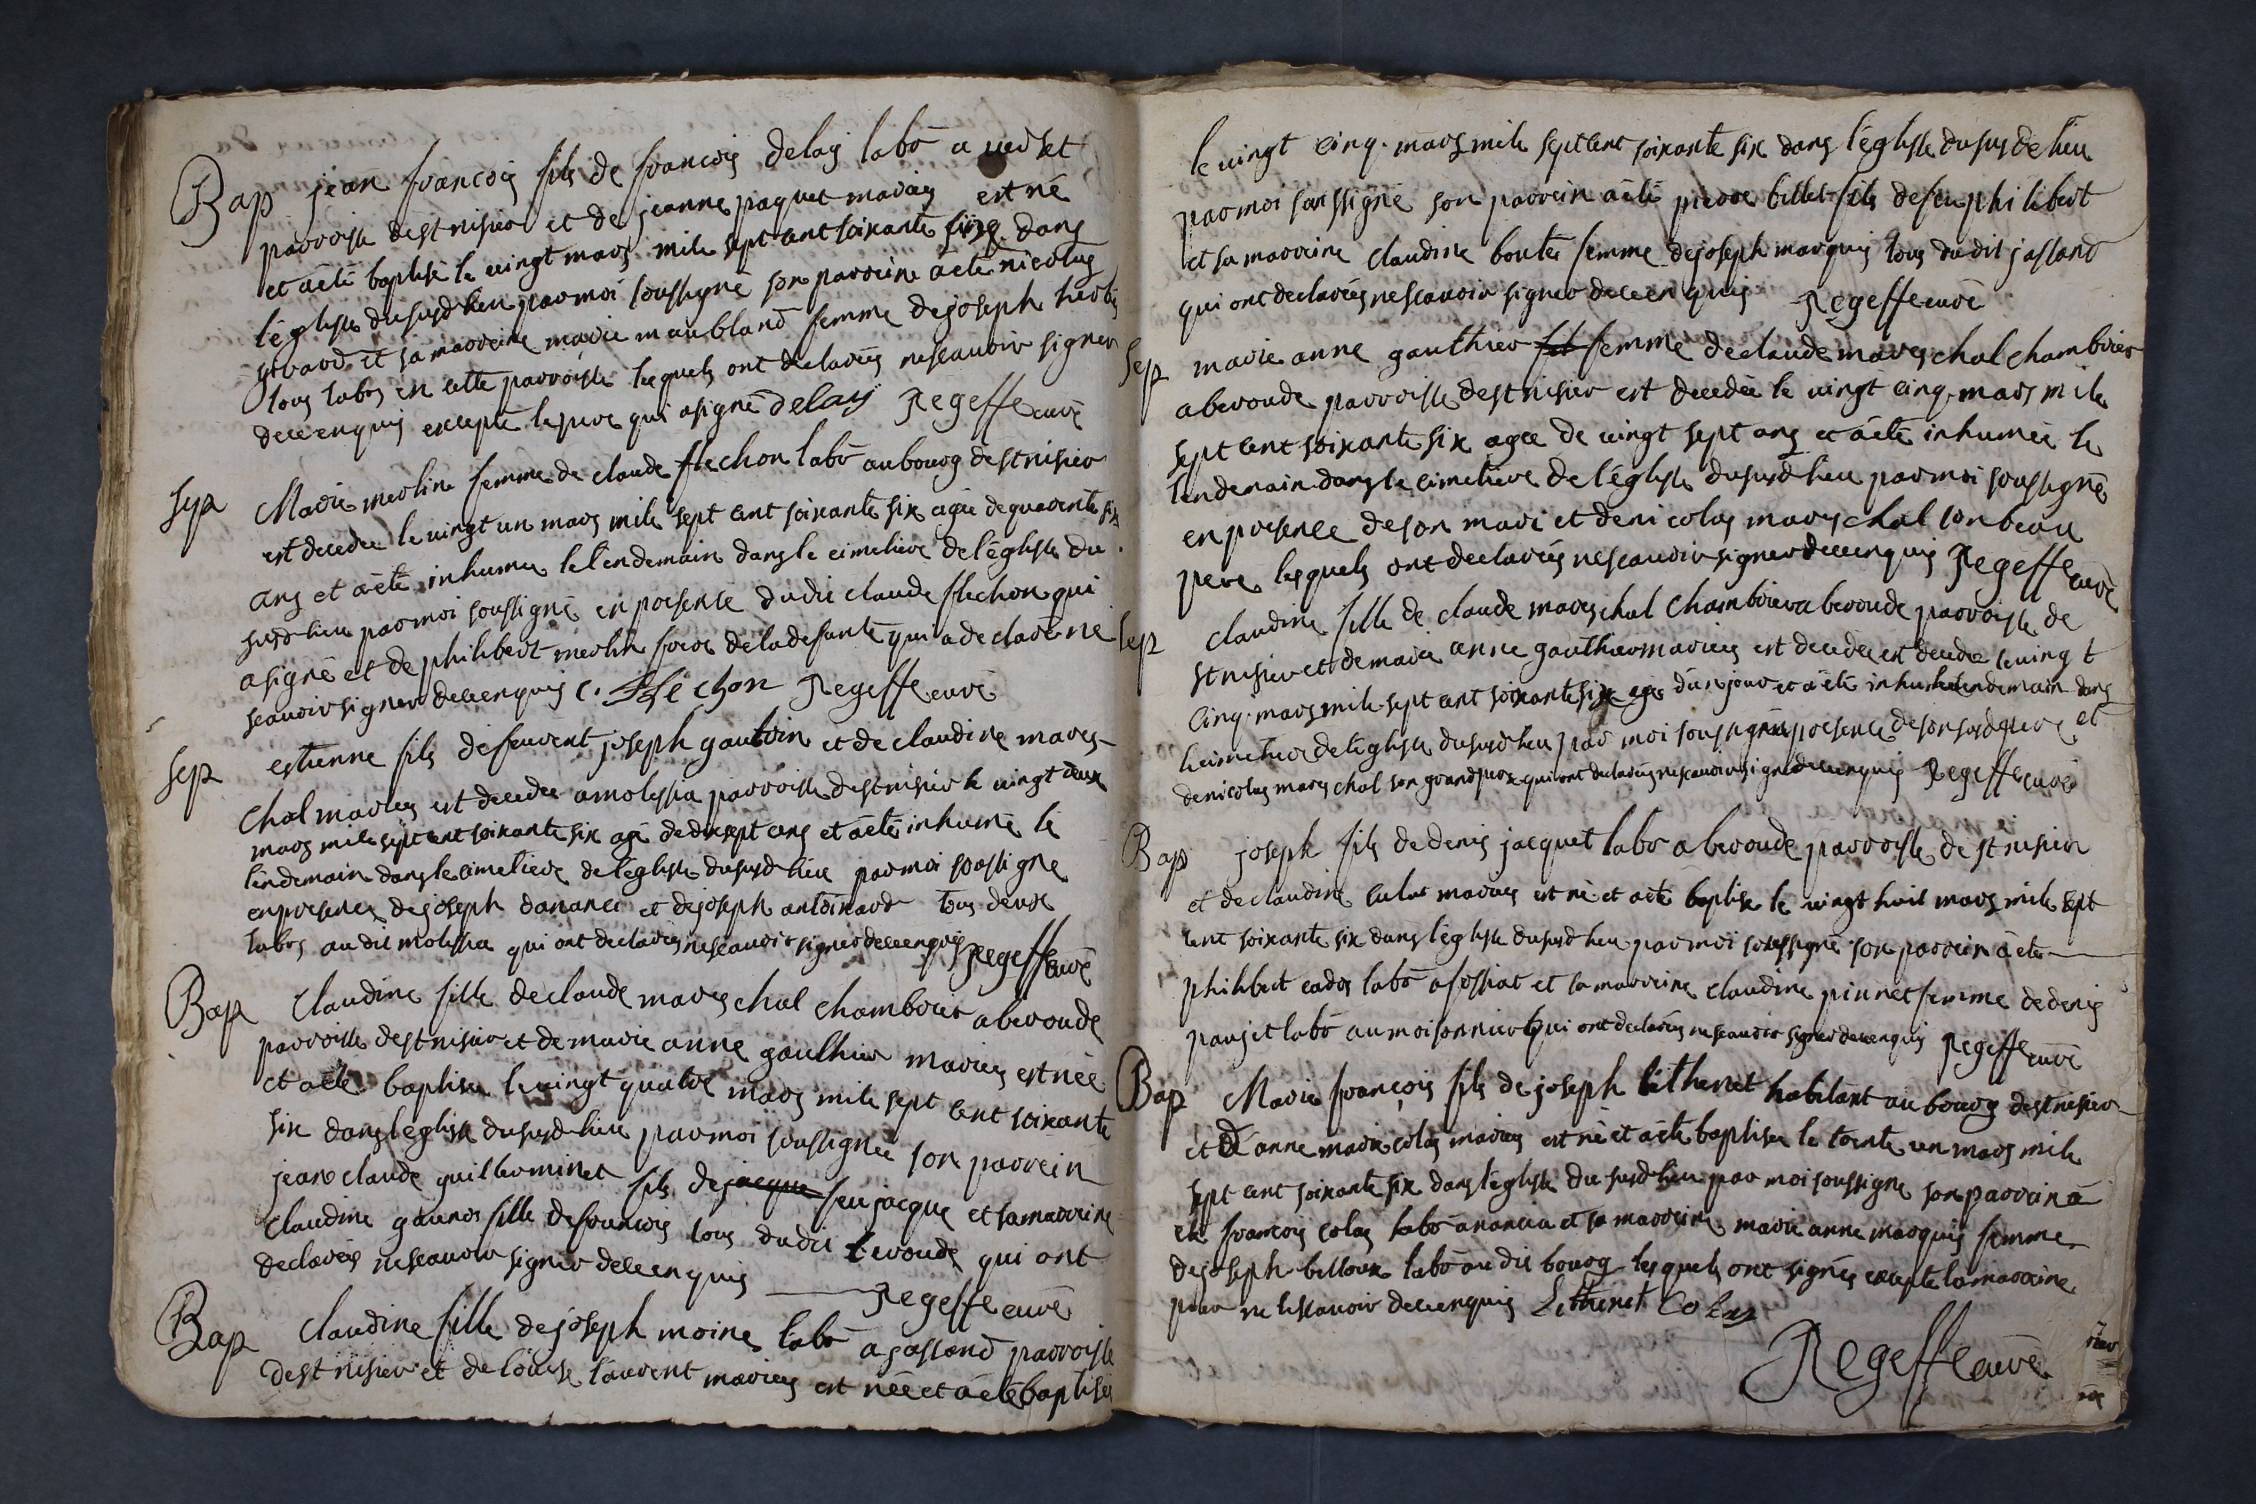 Bap jean francois fils de francois delay labo a
parroisse de st nisier et de jeanne paquet mariés est né
et a été baptisé le vingt mars mile sept cent soixante dans
l'eglise du susd lieu par moi soussigné son parrein a eté nicolas
et sa marreine marie maubland femme de joseph
tous labrs en cette parroisse lesquels ont declarés ne scauoir signer
de ce enquis excepté le pere qui a signé delay Regeffe curé
Sep Marie merlin femme de claude flechon labr au bourg de st nisier
est decedee le vingt un mars mile sept cent soixante six agée de quarente six
ans et a été inhumee le l'endemain dans le cimetiere de l'eglise du
susd lieu par moi soussigné en presence dudit claude flechon qui
a signé et de philibert merlin frere de la defunte qui a declaré ne
scauoir signer de ce enquis c. flechon Regeffe curé
Sep estienne fils de feu joseph et de claudine mares-
chal mariés est decede a molissia parroisse de st nisier le vingt deux
mars mile sept cent soixante six agé de dixsept ans et a eté inhumé le
l'endemain dans le cimetiere de l'eglise du susd lieu par moi soussigné
en presence de joseph dananci et de joseph antoinard tous deux
labrs au dit molissia qui ont declarés ne scauoir signer de ce enquis Regeffe curé
Bap Claudine fille de claude mareschal chambrier a beroude
parroisse de st nisier et de marie anne gauthier mariés est née
et a eté baptisee le vingt quatre mars mile sept cent soixante
six dans leglise du susd lieu par moi soussigné son parrein
jean claude guilleminet fils de jacque feu jacque et sa marreine
claudine fille de francois tous dudit beroude qui ont
declarés ne scauoir signer de ce enquis Regeffe curé
Bap Claudine fille de joseph moine labr a jassand parroisse
de st nisier et de louise laurent mariés est née et a eté baptisée
le vingt cinq mars mile sept cent soixante six dans l'eglise du susd lieu
par moi soussigné son parrein a eté pierre billet fils de feu philibert
et sa marreine claudine boute femme de joseph marquis tous du dit jassand
qui ont declarés ne scauoir signer de ce enquis Regeffe curé
Sep marie anne gauthier femme de claude mareschal chambrier
a beroude parroisse de st nisier est decedée le vingt cinq mars mile
sept cent soixante six agee de vingt sept ans et a eté inhumée le
l'endemain dans le cimetiere de l'eglise du susd lieu par moi soussigné
en presence de son mari et de nicolas mareschal son beau
pere lesquels ont declarés ne scauoir signer de ce enquis Regeffe curé
Sep claudine fille de claude mareschal chambrier a beroude parroisse de
st nisier et de marie anne gauthier mariés est decedée est decedee le vingt
cinq mars mile sept cent soixante six agée d'un jour et a eté l'endemain dans
le cimetiere de l'eglise du susd lieu par moi soussigné en presence de son susd pere et
de nicolas mareschal son grand pere qui ont declarés ne scauoir signer de ce enquis Regeffe curé
Bap joseph fils de denis jacquet labr a beroude parroisse de st nisier
et de claudine mariés est né et a eté baptise le vingt huit mars mile sept
cent soixante six dans l'eglise du susd lieu par moi soussigné son parrein a eté
philibert labr a fossiat et sa marreine claudine femme de denis
labr au moisonnier qui ont declarés ne scauoir signer de ce enquis Regeffe curé
Bap Marie françois fils de joseph lethenet habitant au bourg de st nisier
et de anne marie colas mariés est né et a eté baptisee le trente un mars mile
sept cent soixante six dans l'eglise du susd lieu par moi soussigné son parrein a
eté francois colas labr a nancia et sa marreine marie anne marquis femme
de joseph belloux labr au dit bourg lesquels ont signés excepté la marreine
pour ne le scauoir de ce enquis Lethenet Colas
Regeffe curé